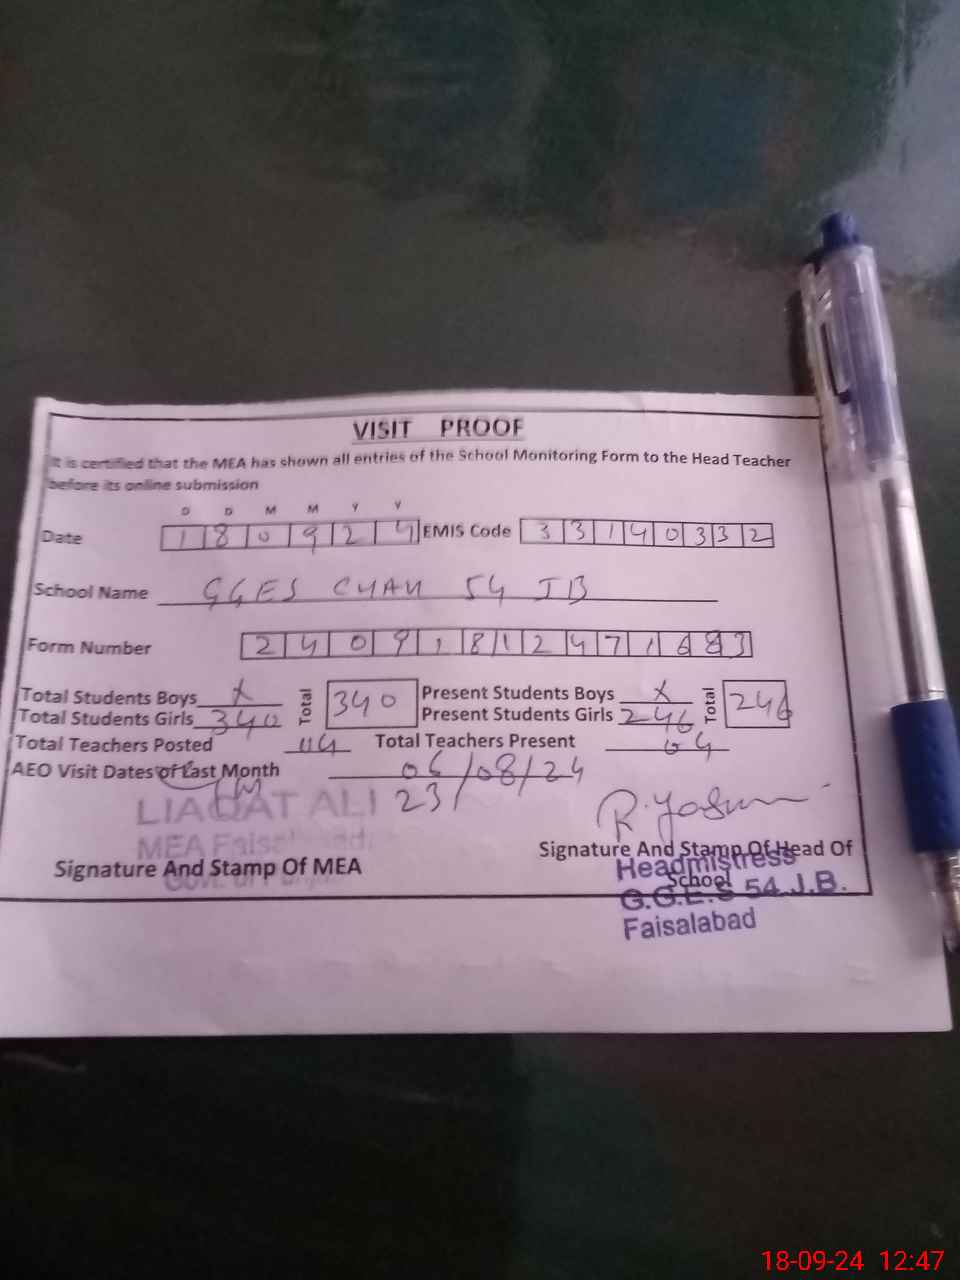 VISIT PROOF
It is certified that the MEA has shown all entries of the School Monitoring Form to the Head Teacher
before its online submission
D D M M Y Y
Date 180924 EMIS Code 33140332
School Name GGES CHAK 54 JB
Form Number 24091812471683
Total Students Boys x Total 340 Present Students Boys x Total 246
Total Students Girls 340 Present Students Girls 246
Total Teachers Posted 04 Total Teachers Present 04
AEO Visit Dates of Last Month 06/08/24
23/
LIAQAT ALI
MEA Faisalabad
R. Yasmin
Signature And Stamp Of MEA Signature And Stamp Of Head Of
School
Headmistress
G.G.E.S 54 J.B.
Faisalabad
18-09-24 12:47